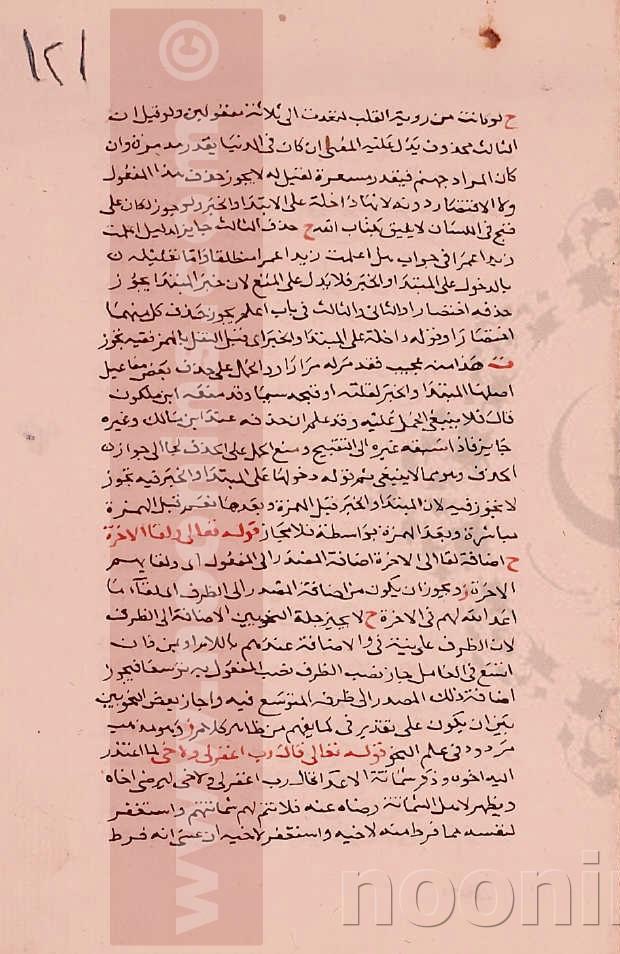 ١٢١
ح لو كانت من روية القلب لتعدت الى ثلاثة مفعولين ولو قيل ان
الثالث محذوف يدل عليه المعنى ان كان في الدنيا يقدر مدمرة وان
كان المراد جهنم فيقدر مسعرة لقيل له لا يجوز حذف هذا المفعول
ولا الاقتصار دونه لانها داخلة على الابتدا والخبر ولو جوز لكان على
قبح في اللسان لا يليق بكتاب الله ح حذف الثالث جايز لدليل اعلمت
زيدا عمرا في جواب هل اعلمت زيدا عمرا منطلقا واما تعليله
بالدخول على المبتدا والخبر فلا يدل على المنع لان خبر المبتدا يجوز
حذفه اختصارا والثاني والثالث في باب اعلم يجوز حذف كل منهما
اختصارا وقوله داخلة على المبتدا والخبر اي قبل النقل بالهمز ففيه تجوز
هذا منه عجيب فقد مر له مرارا رد الحمل على حذف بعض مفاعيل
اصلها المبتدا والخبر لقلته او قبحه سيما وقد منعه ابن ملكون
قال فلا ينبغي الحمل عليه وقد علم ان حذفه عند ابن مالك وغيره
جايز فاذا سبقه غيره الى التقبيح ومنع الحمل على الحذف لجا الى جواز
الحذف وهو مما لا ينبغي ثم قوله دخولها على المبتدا والخبر فيه تجوز
لا تجوز فيه لان المبتدا والخبر قبل الهمزة وبعدها نعم قبل الهمزة
مباشرة وبعد الهمزة بواسطة فلا مجاز قوله تعالى ولقا الاخرة
ح اضافة لقا الى الاخرة اضافة المصدر الى المفعول اي ولقايهم
الاخرة ز ويجوز ان يكون من اضافة المصدر الى الظرف اي لقاء ما
اعد الله لهم في الاخرة ح لا يجيز جلة النحويين الاضافة الى الظرف
لان الظرف على نية في والاضافة عندهم باللام او من فان
اتسع في العامل جاز نصب الظرف نصب المفعول به توسعا فيجوز
اضافة ذلك المصدر الى ظرفه المتوسع فيه واجاز بعض النحويين
ان يكون على تقدير في كما يفهم من ظاهر كلام ز وهو مذهب
مردود في علم النحو قوله تعالى قال رب اغفر لي ولاخي لما اعتذر
اليه اخوه وذكر شماتة الاعدا قال رب اغفر لي ولاخي ليرضي اخاه
ويظهر لاهل الشماتة رضاه عنه فلا تتم لهم شماتتهم واستغفر
لنفسه مما فرط منه لاخيه واستغفر لاخيه ان عسى انه فرط
www.noormags.com ©
noorlib